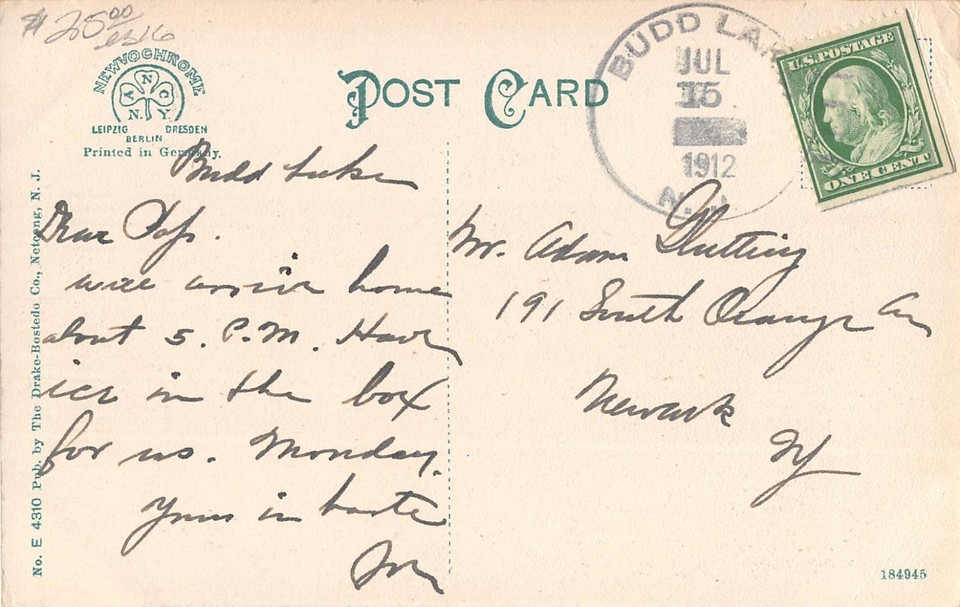 $25.00
NEWVOCHROME
A N C
N.Y.
LEIPZIG DRESDEN
BERLIN
Printed in Germany.
POST CARD
BUDD LAKE
JUL
15
1912
N.J.
U.S. POSTAGE
ONE CENT
Budd Lake
Dear Pop.
will arrive home
about 5. P.M. Have
ice in the box
for us. Monday.
Yours in haste
Mr. Adam
191 South Orange Av
Newark
NJ
No. E 4310 Pub. by The Drake-Bostedo Co., Netcong, N. J.
184945